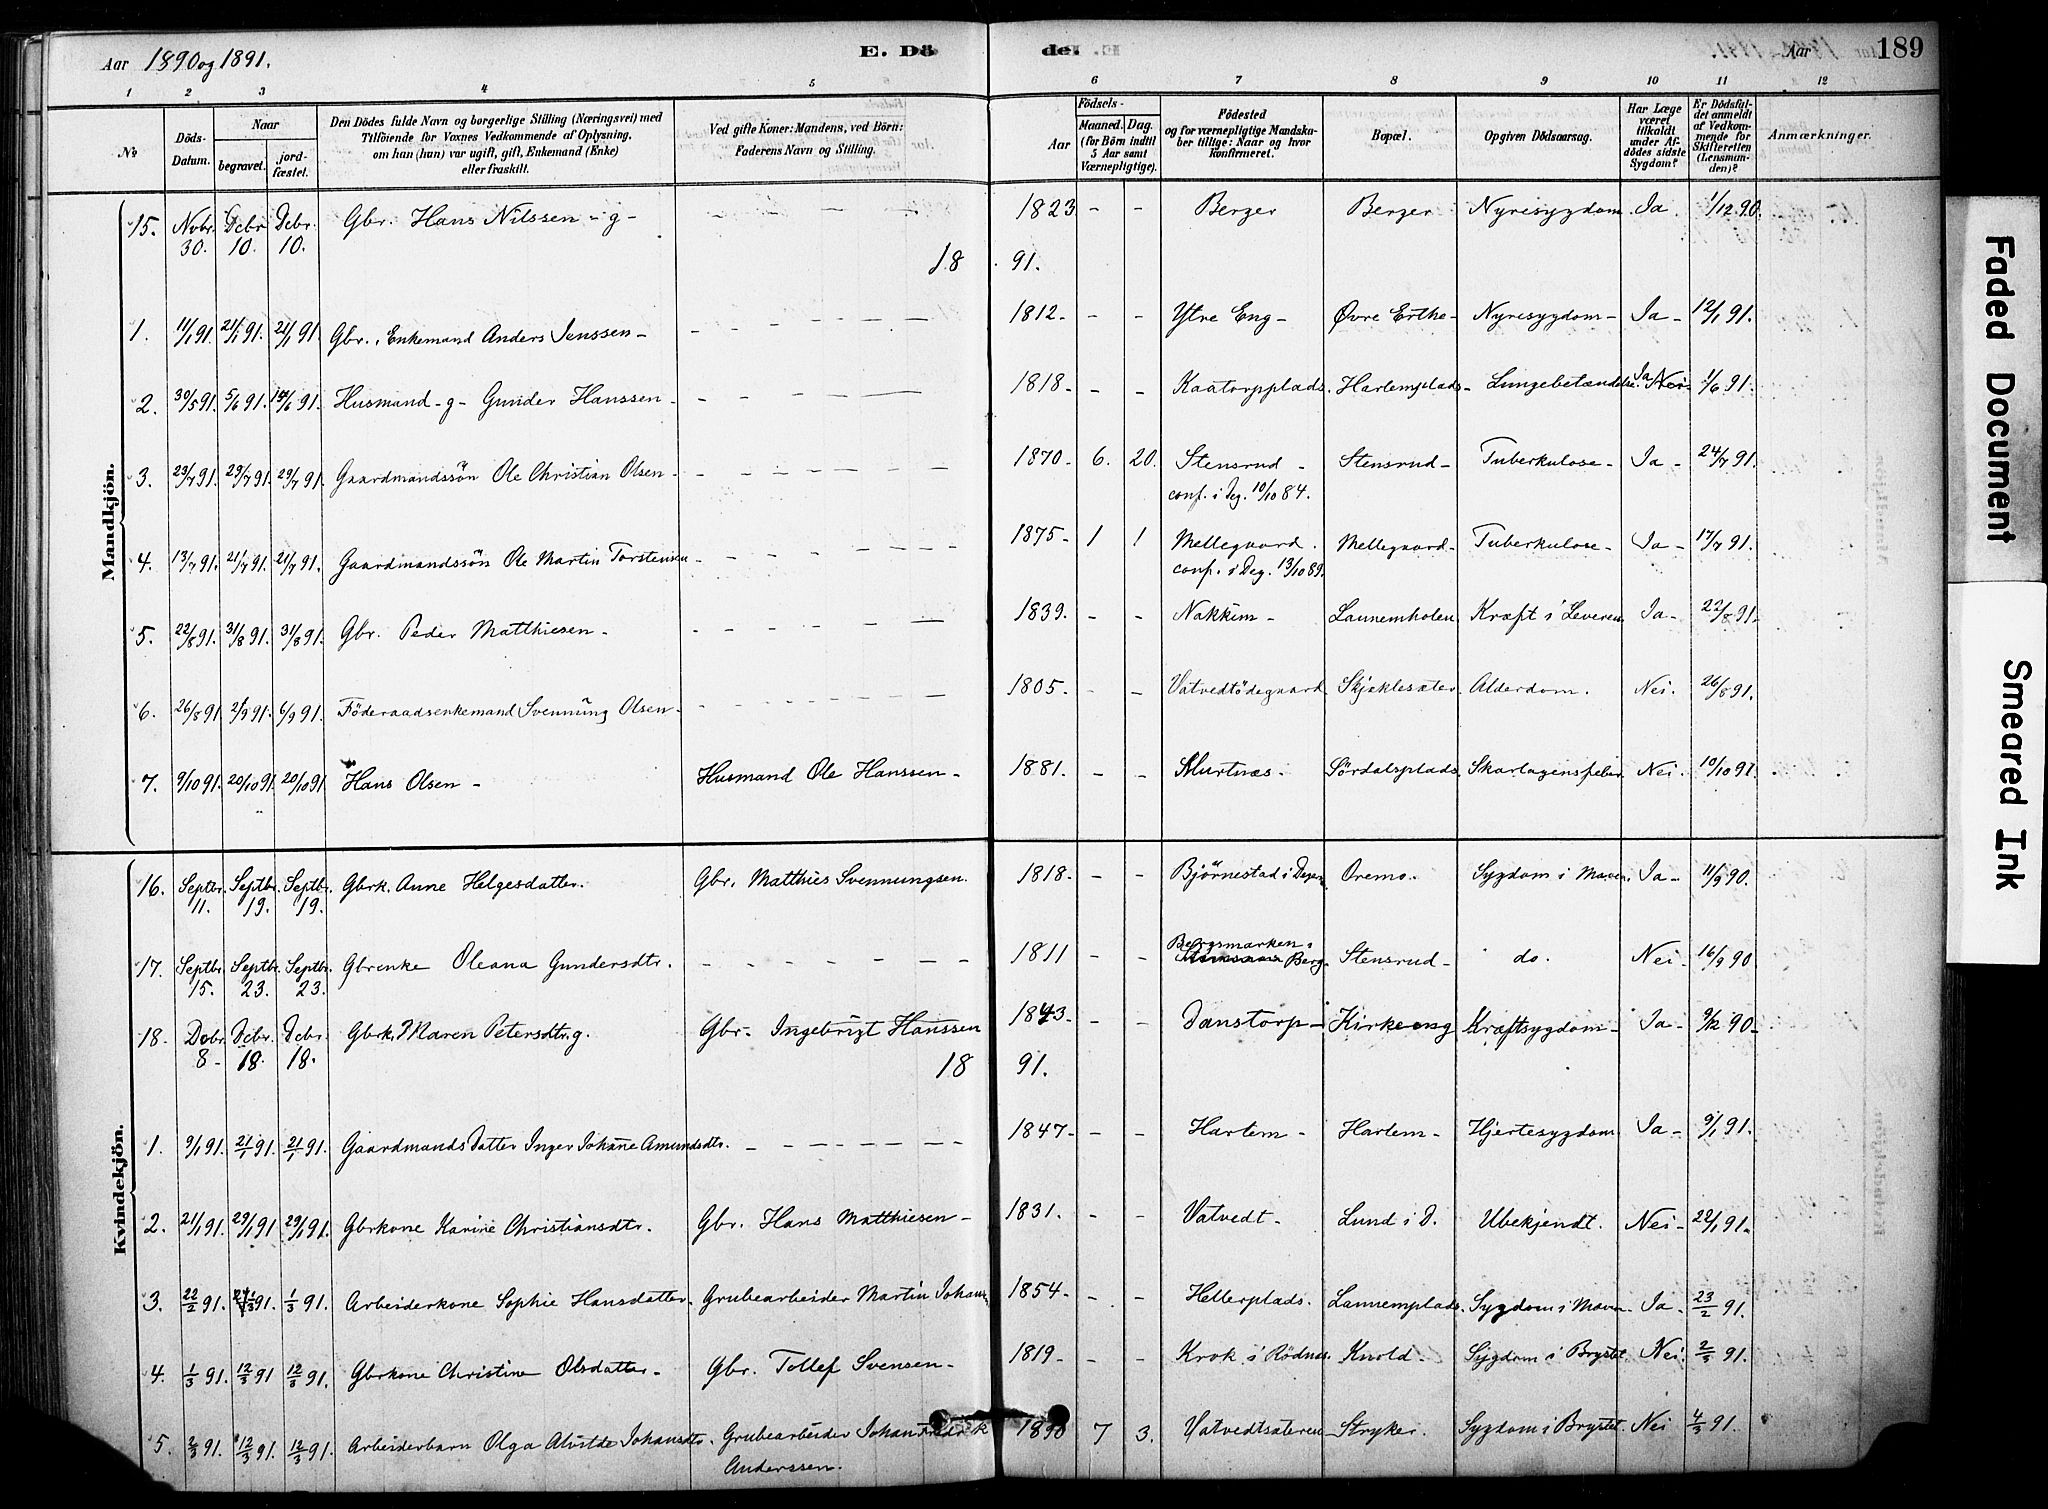 Aar 1890 og 1891. E. Dö de. Aar 189
1 2 3 4 5 6 7 8 9 10 11 12
№ Döds-Datum. Naar begravet. jordfæstet. Den Dödes fulde Navn og borgerlige Stilling (Næringsvei) med Tilföiende for Voxnes Vedkommende af Oplysning, om han (hun) var ugift, gift, Enkemand (Enke) eller fraskilt. Ved gifte Koner: Mandens, ved Börn: Faderens Navn og Stilling. Födsels- Aar Maaned. Dag. (for Börn indtil 5 Aar samt Værnepligtige). Födested og for værnepligtige Mandskaber tillige: Naar og hvor konfirmeret. Bopæl. Opgiven Dödsaarsag. Har Læge været tilkaldt under Afdödes sidste Sygdom? Er Dödsfaldet anmeldt af Vedkommende for Skifteretten (Lensmanden)? Anmærkninger.
Mandkjön.
15. Novbr. 30. Decbr. 10. Dcbr. 10. Gbr. Hans Nilssen - g - 1823 - - Berger Berger Nyresygdom Ja. 1/12 90.
1891.
1. 11/1 91. 21/1 91. 21/1 91. Gbr., Enkemand Anders Jenssen - 1812. - - Ytre Eng - Øvre Erthe - Nyresygdom - Ja - 12/1 91.
2. 30/5 91. 5/6 91. 14/6 91. Husmand - g - Gunder Hanssen - 1818 - - - Kaatorpplads. Harlemplads - Lungebetændelse. Ja Nei - 1/6 91.
3. 23/7 91. 29/7 91. 29/7 91. Gaardmandssön Ole Christian Olsen - 1870 - 6. 20. Stensrud - conf. i Deg. 10/10 84. Stensrud - Tuberkulose - Ja - 24/7 91.
4. 13/7 91. 21/7 91. 21/7 91. Gaardmandssön Ole Martin Torstensen 1875 - 1 1 Mellegaard. conf. i Deg. 13/10 89. Mellegaard - Tuberkulose - Ja - 17/7 91.
5. 22/8 91. 31/8 91. 31/8 91. Gbr. Peder Matthiesen - 1839. - - Nakkim - Lannemholen Kræft i Leveren Ja - 22/8 91.
6. 26/8 91 2/9 91. 6/9 91. Föderaadsenkemand Svennung Olsen - 1805. - - Vatvedtödegaard Skjeklesæter. Alderdom. Nei. 26/8 91.
7. 9/10 91. 20/10 91. 20/10 91 Hans Olsen - Husmand Ole Hanssen - 1881. - - Murtnæs - Sördalsplads. Skarlagensfeber Nei. 10/10 91.
Kvindekjön.
16. Septbr. 11. Septbr. 19. Septbr. 19. Gbrk. Anne Helgesdatter. Gbr. Matthies Svennungsen. 1818 - - - Bjørnestad i Degern. Oremo. Sygdom i Maven. Ja - 11/9 90.
17. Septbr. 15. Septbr. 23. Septbr. 23. Gbrenke Oleana Gundersdtr. 1811 - - Bergsmarken i Berg. Stensrud - do. Nei - 16/9 90
18. Decbr. 8 - Decbr. 18. Dcbr. 18. Gbrk. Maren Petersdtr. g. Gbr. Ingebrigt Hanssen 1843 - - - Danstorp - Kirkeeng Kræftsygdom - Ja - 9/12 90 -
1891.
1. 9/1 91. 21/1 91. 21/1 91. Gaardmands Datter Inger Johane Amundsdtr. 1847 - - - Harlem - Harlem - Hjertesygdom. Ja - 9/1 91.
2. 21/1 91. 29/1 91 29/1 91. Gbrkone Karine Christiansdtr. Gbr. Hans Matthiesen - 1831. - - Vatvedt - Lund i D. Ubekjendt. Nei - 22/1 91 -
3. 22/2 91. 1/3 91. 1/3 91. Arbeiderkone Sophie Hansdatter. Grubearbeider Martin Johans 1854 - - - Hellerplads. Lannemplads. Sygdom i Maven - Ja - 23/2 91.
4. 1/3 91. 12/3 91 12/3 91. Gbrkone Christine Olsdatter - Gbr. Tollef Svensen - 1819 - - - Krok i Rödnes. Knold. Sygdom i Brystet Nei. 2/3 91.
5. 2/3 91. 12/3 91. 12/3 91. Arbeiderbarn Olga Alvilde Johansdtr. Grubearbeider Johan Fredrik Anderssen. 1890 7 3. Vatvedtsæteren - Stryker. Sygdom i Brystet. Nei 4/3 91.
Faded Document
Smeared Ink